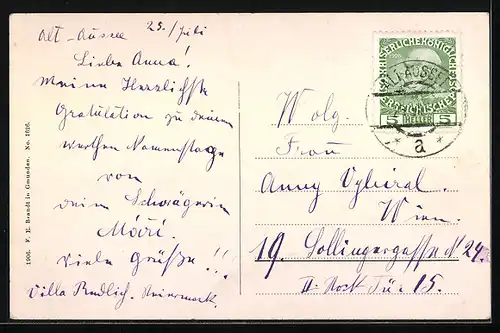 Alt-Aussee 25./Juli
Liebe Anna!
Meine Herzlichste
Gratulation zu deinem
werthen Namenstage
von
dein Schwägerin
Mári.
viele Grüße!!!
Villa Redlich. Steiermark.
1906. F. E. Brandt in Gmunden. No. 1026.
KAISERLICHE KÖNIGLICHE
ÖSTERREICHISCHE
5 HELLER 5
ALT-AUSSEE
* a *
Wolg.
Frau
Anny Vybiral.
Wien.
19. Sollingergasse № 24.
II. Stock Tür 15.